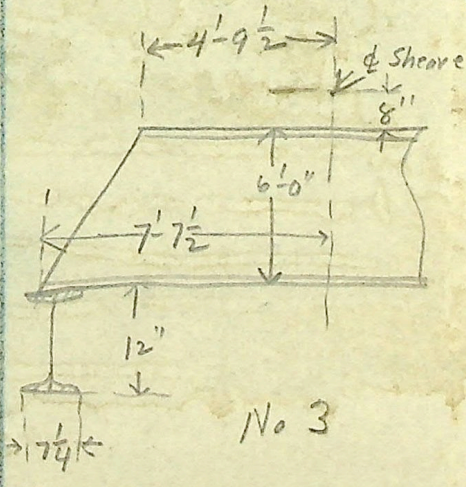 4'-9 1/2
¢ Sheave
8"
6'-0"
7'-7 1/2
12"
7 1/4
No 3